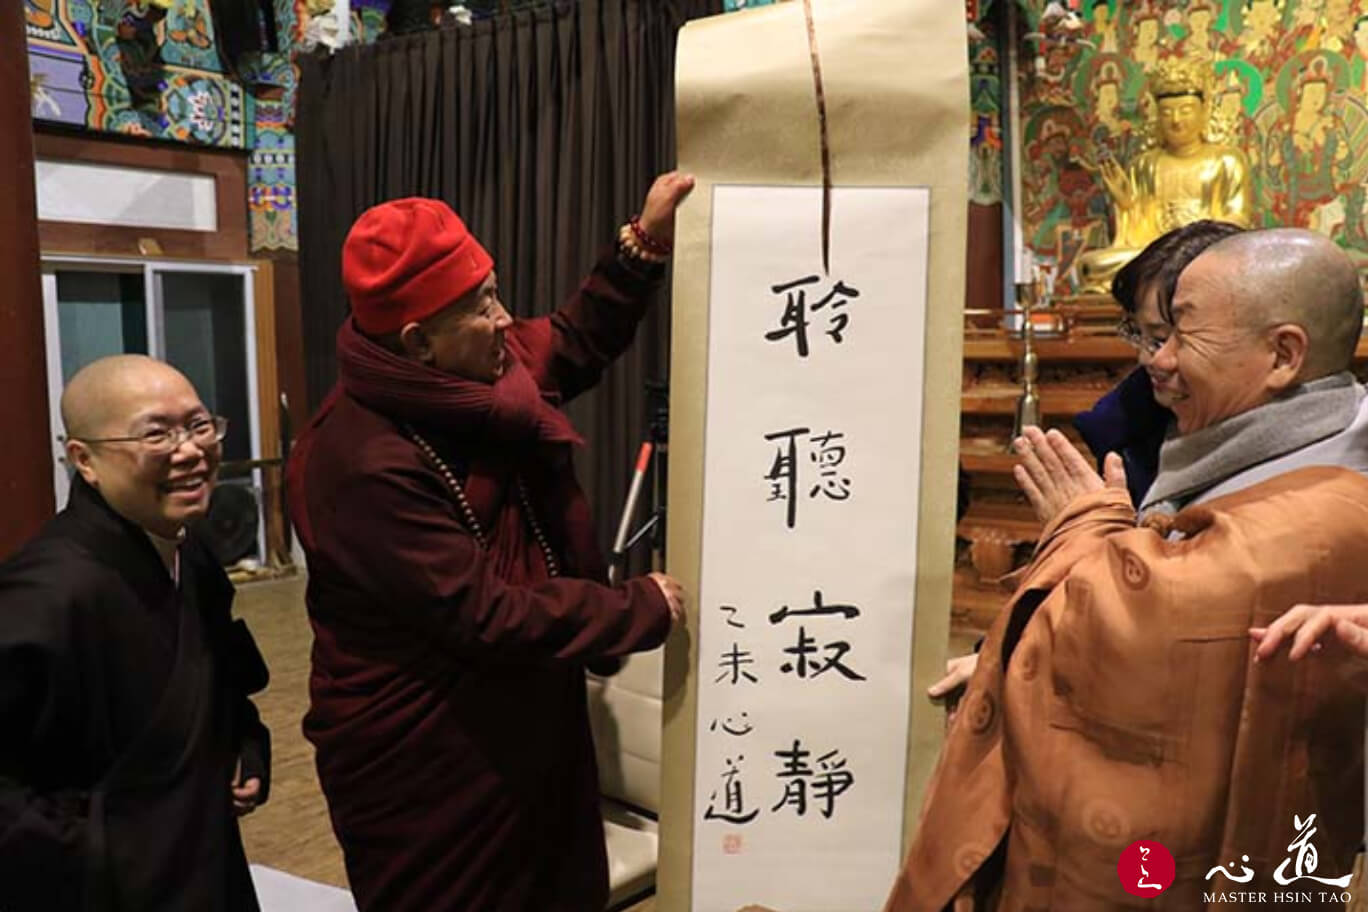 聆聽寂靜
乙未心道
心道
MASTER HSIN TAO